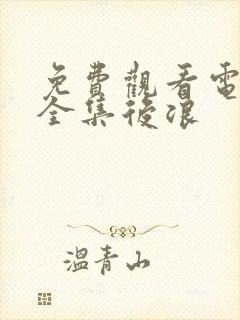 免費觀看電
全集後浪
溫青山